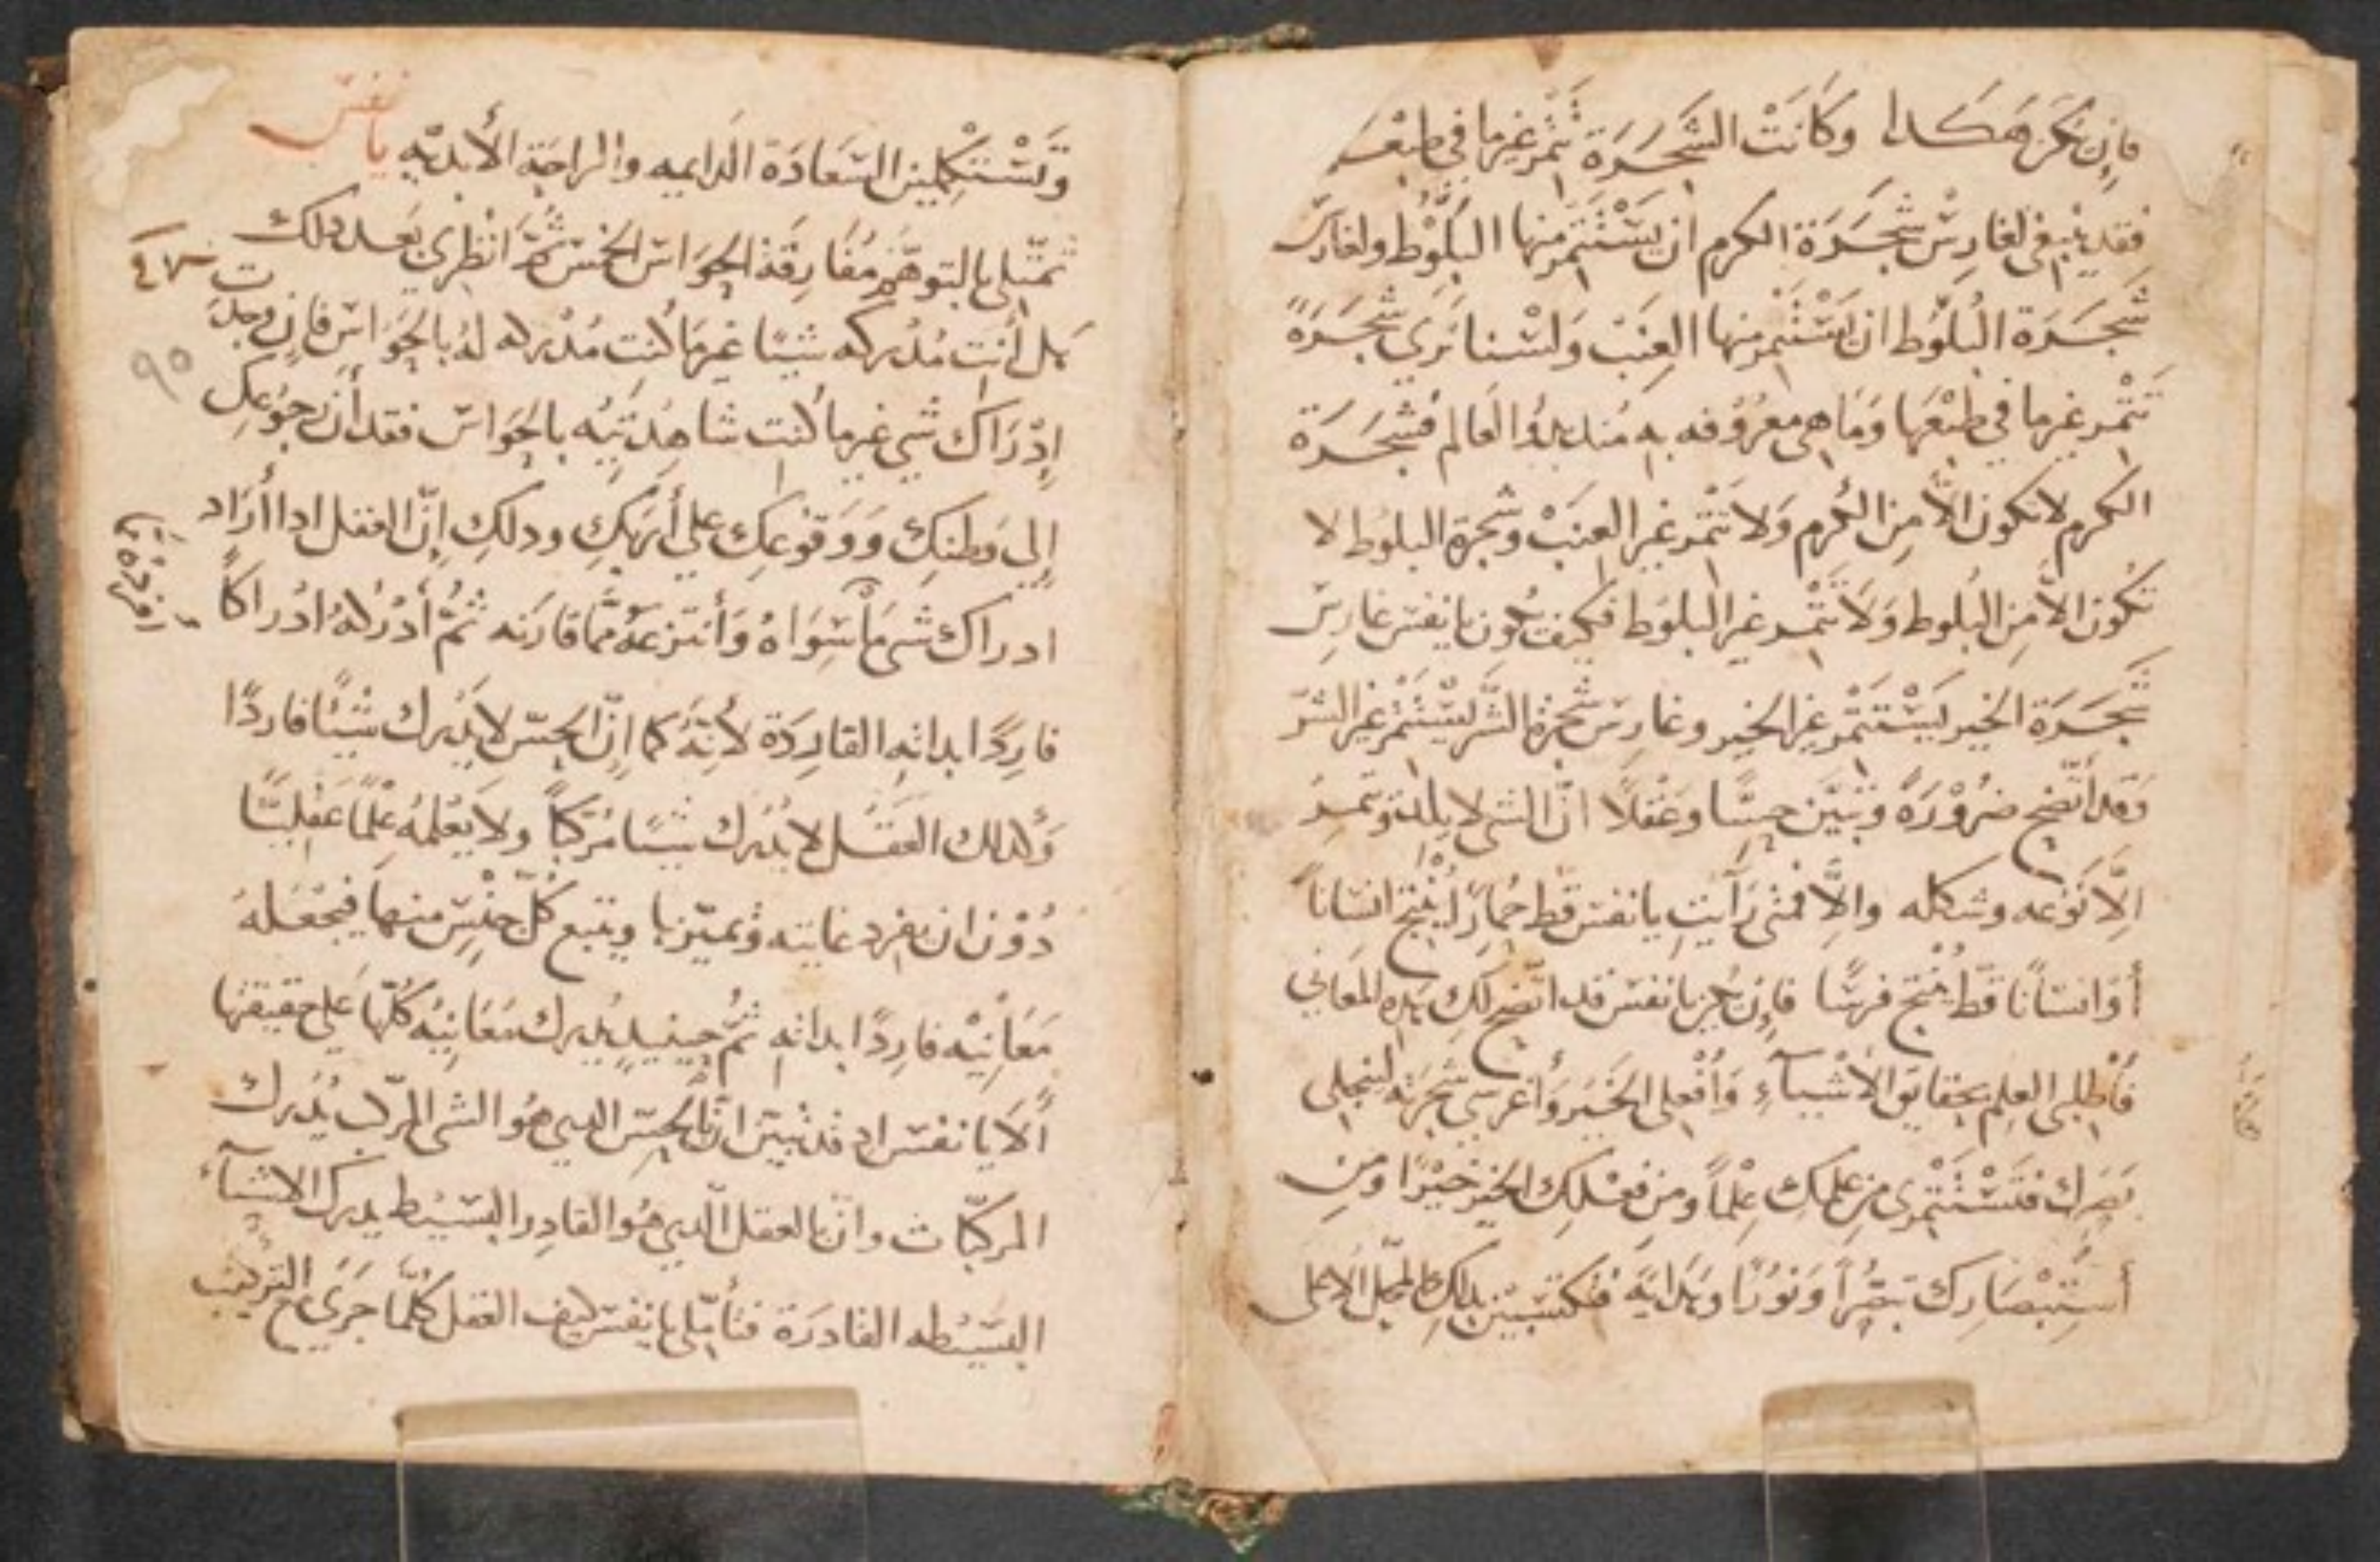 فإن يكن هكدا وكانت الشجرة تثمر غير ما في طبعها
فقد ينبغي لغارس شجرة الكرم ان يستثمر منها البلوط ولغارس
شجرة البلوط ان يستثمر منها العنب ولسنا نرى شجرة
تثمر غير ما في طبعها وما هي معروفه به مند بدؤ العالم فشجرة
الكرم لا تكون الا من الكرم ولا تثمر غير العنب وشجرة البلوط لا
تكون الا من البلوط ولا تثمر غير البلوط فكيف يكون يا نفس غارس
شجرة الخير يستثمر غير الخير وغارس شجرة الشر يستثمر غير الشر
وقد أتضح ضرورة وتبين حسا وعقلا ان الشي لا يلد ويثمر
الا نوعه وشكله والا فمتى رأيت يا نفس قط حمارا ينتج انسانا
أو انسانا قط ينتج فرسا فإن يكن يا نفس قد اتضح لك هده المعاني
فأطلبي العلم بحقايق الأشيآء وأفعلي الخير وأغرسي شجرته لينجلي
بصرك فتستثمري من علمك علما ومن فعلك الخير خيرا ومن
أستبصارك تبصرا ونورا وهداية فتكتسبين بدلك المحل الاعلى
وتستكملين السعادة الدايمه والراحة الأبديه يا نفس
تمثلي بالتوهم مفارقة الحواس الخمس ثم انظري بعد دلك
هل أنت مدركه شيا غير ما كنت مدركه له بالحواس فإن وجدت
إدراك شي غير ما كنت شاهدتيه بالحواس فقد أن رجوعك
إلى وطنك ووقوعك على أربك ودلك إن العقل ادا أراد
ادراك شي ما سواه وأنتزعه مما قارنه ثم أدركه ادراكا
فاردا بداته الفاردة لأنه كما إن الحس لا يدرك شيئا فاردا
وكدلك العقل لا يدرك شيا مركبا ولا يعلمه علما عقليا
دون ان يفرد غايته وتميزها ويتبع كل جنس منها فيجعله
معانيه فاردا بداته ثم حينيد يدرك معانيه كلها على حقيقتها
ألا يا نفس اد قد تبين ان الحس الدي هو الشي المركب يدرك
المركبات وان العقل الدي هو الفارد البسيط يدرك الاشيآء
البسيطه الفاردة فتأملي يا نفس كيف العقل كلما جرى مع التركيب
٩٥